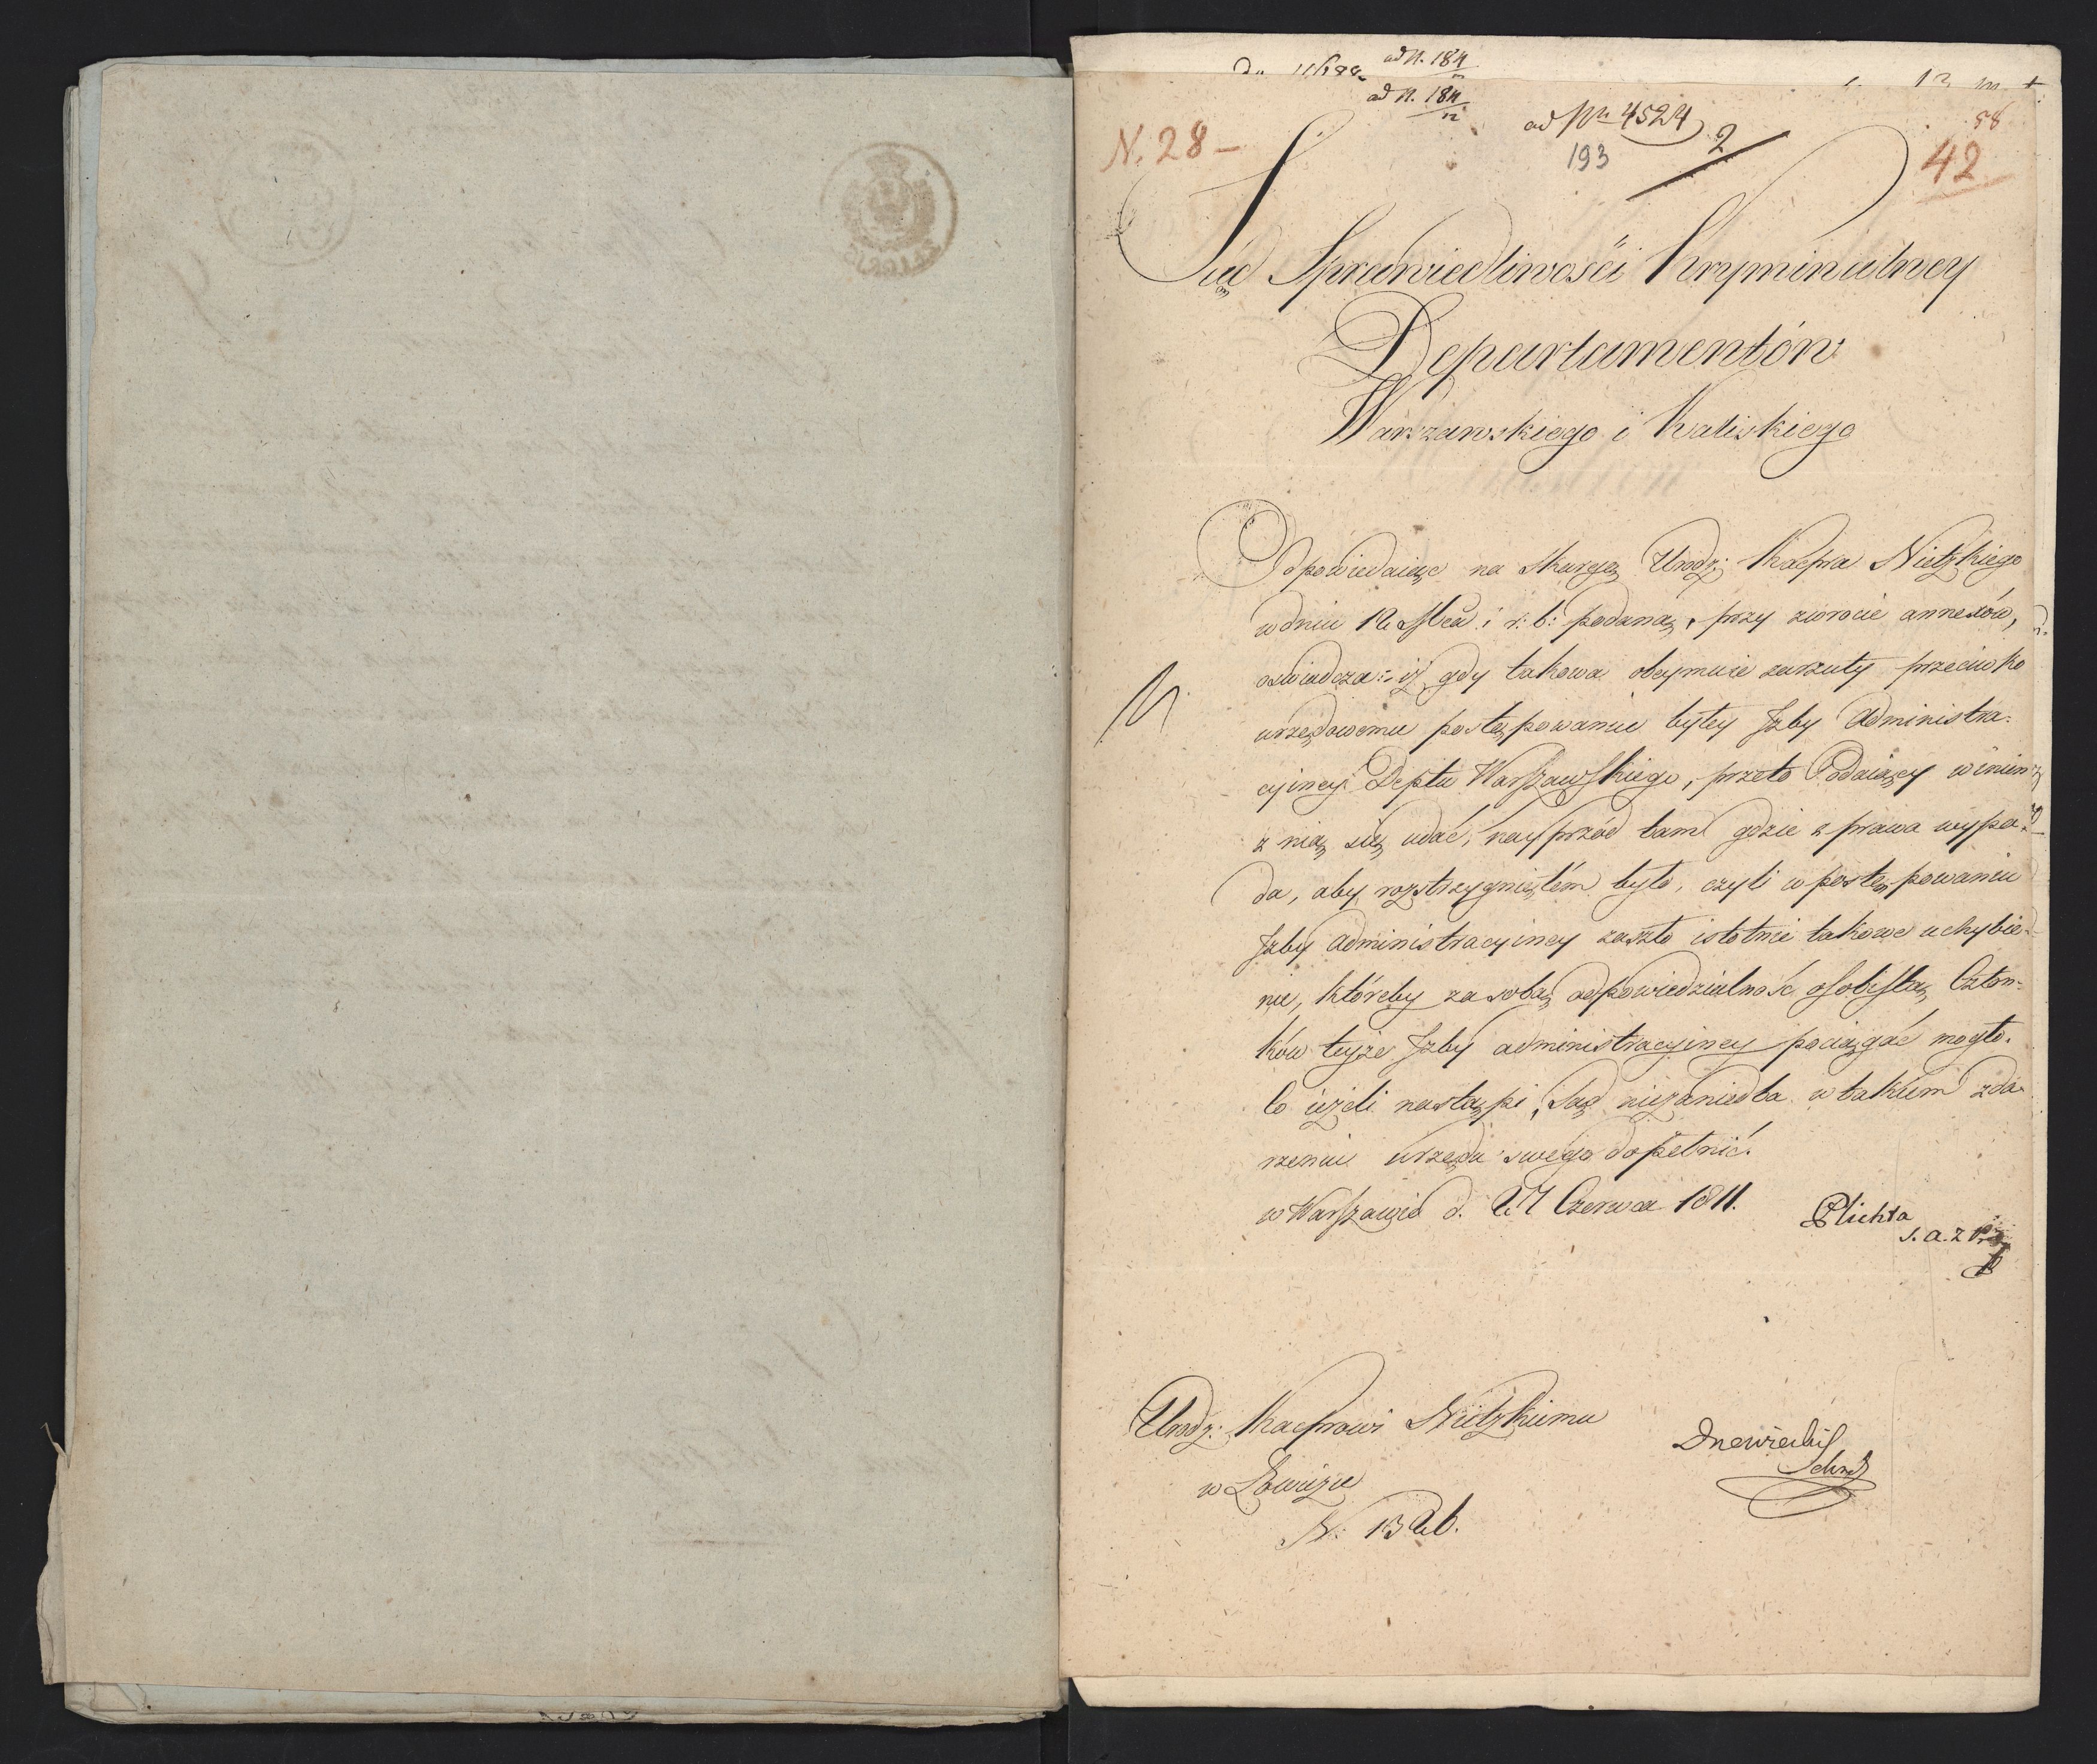 ad N. 184
ad N. 184
N. 28 –
ad Nr 4524
2
193
58
42
Sąd Sprawiedliwości Kryminalney
Departamentów
Warszawskiego i Kaliskiego
Odpowiedaiąc na skargę Urodz: Kacpra Nietzkiego
w dniu 12 Mca i r: b: podaną, przy zwrocie annexów,
oswiadcza: iż gdy takowa obeymuie zarzuty przeciwko
urzędowemu postępowaniu byłey Jzby Administra-
cyiney Deptu Warszawskiego, przeto Podaiący winien
z nią się udać, nayprzód tam gdzie z prawa wypa-
da, aby rozstrzygniętém było, czyli w postępowaniu
Jzby Administracyiney zaszło istotnie takowe uchybie-
nie, któreby za sobą odpowiedzialność osobistą Człon-
ków teyże Jzby administracyiney pociągać mogło.
Co ieżeli nastąpi, Sąd niezaniedba w takiem zda-
rzeniu urzędu swego dopełnić.
w Warszawie d. 27 Czerwca 1811.
Plichta
s. a. z
Urodz: Kacprowi Nietzkiemu
w Łowiczu
N: 1326.